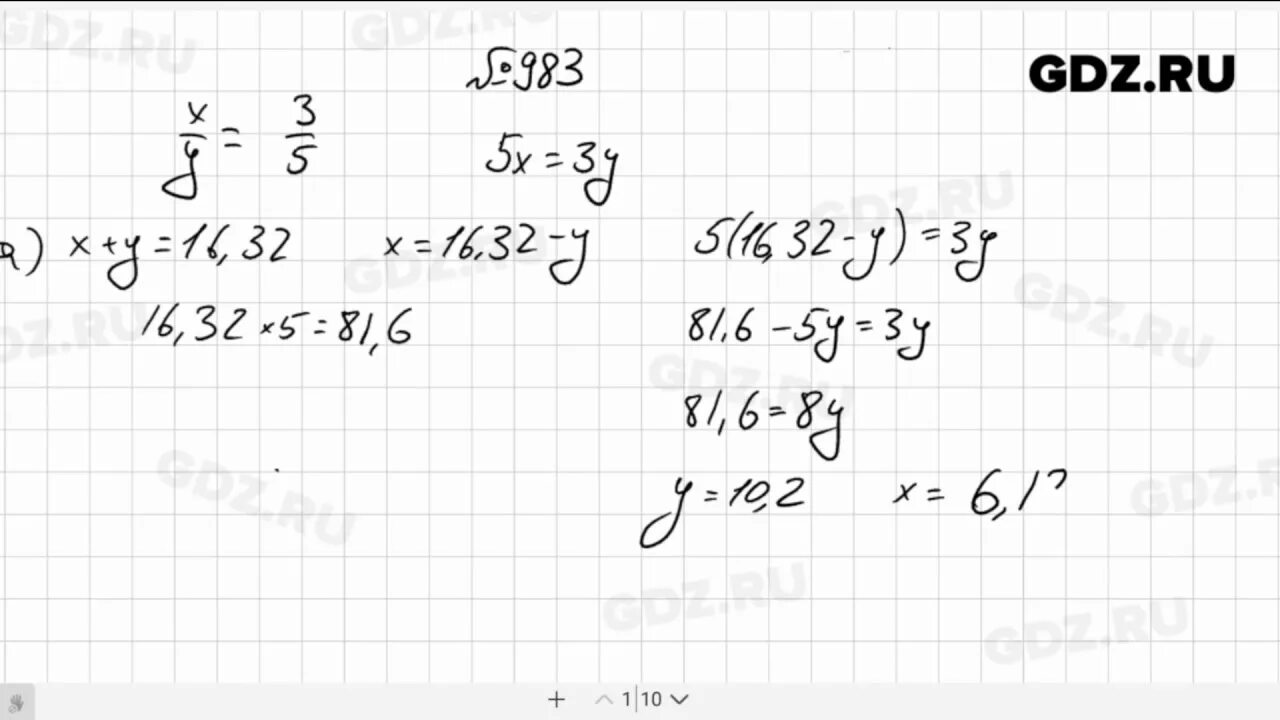 №983
GDZ.RU
x/y = 3/5
5x = 3y
а) x + y = 16,32
x = 16,32 - y
5(16,32 - y) = 3y
16,32 × 5 = 81,6
81,6 - 5y = 3y
81,6 = 8y
y = 10,2
x = 6,1
GDZ.RU
GDZ.RU
GDZ.RU
GDZ.RU
GDZ.RU
GDZ.RU
GDZ.RU
GDZ.RU
GDZ.RU
GDZ.RU
GDZ.RU
1|10